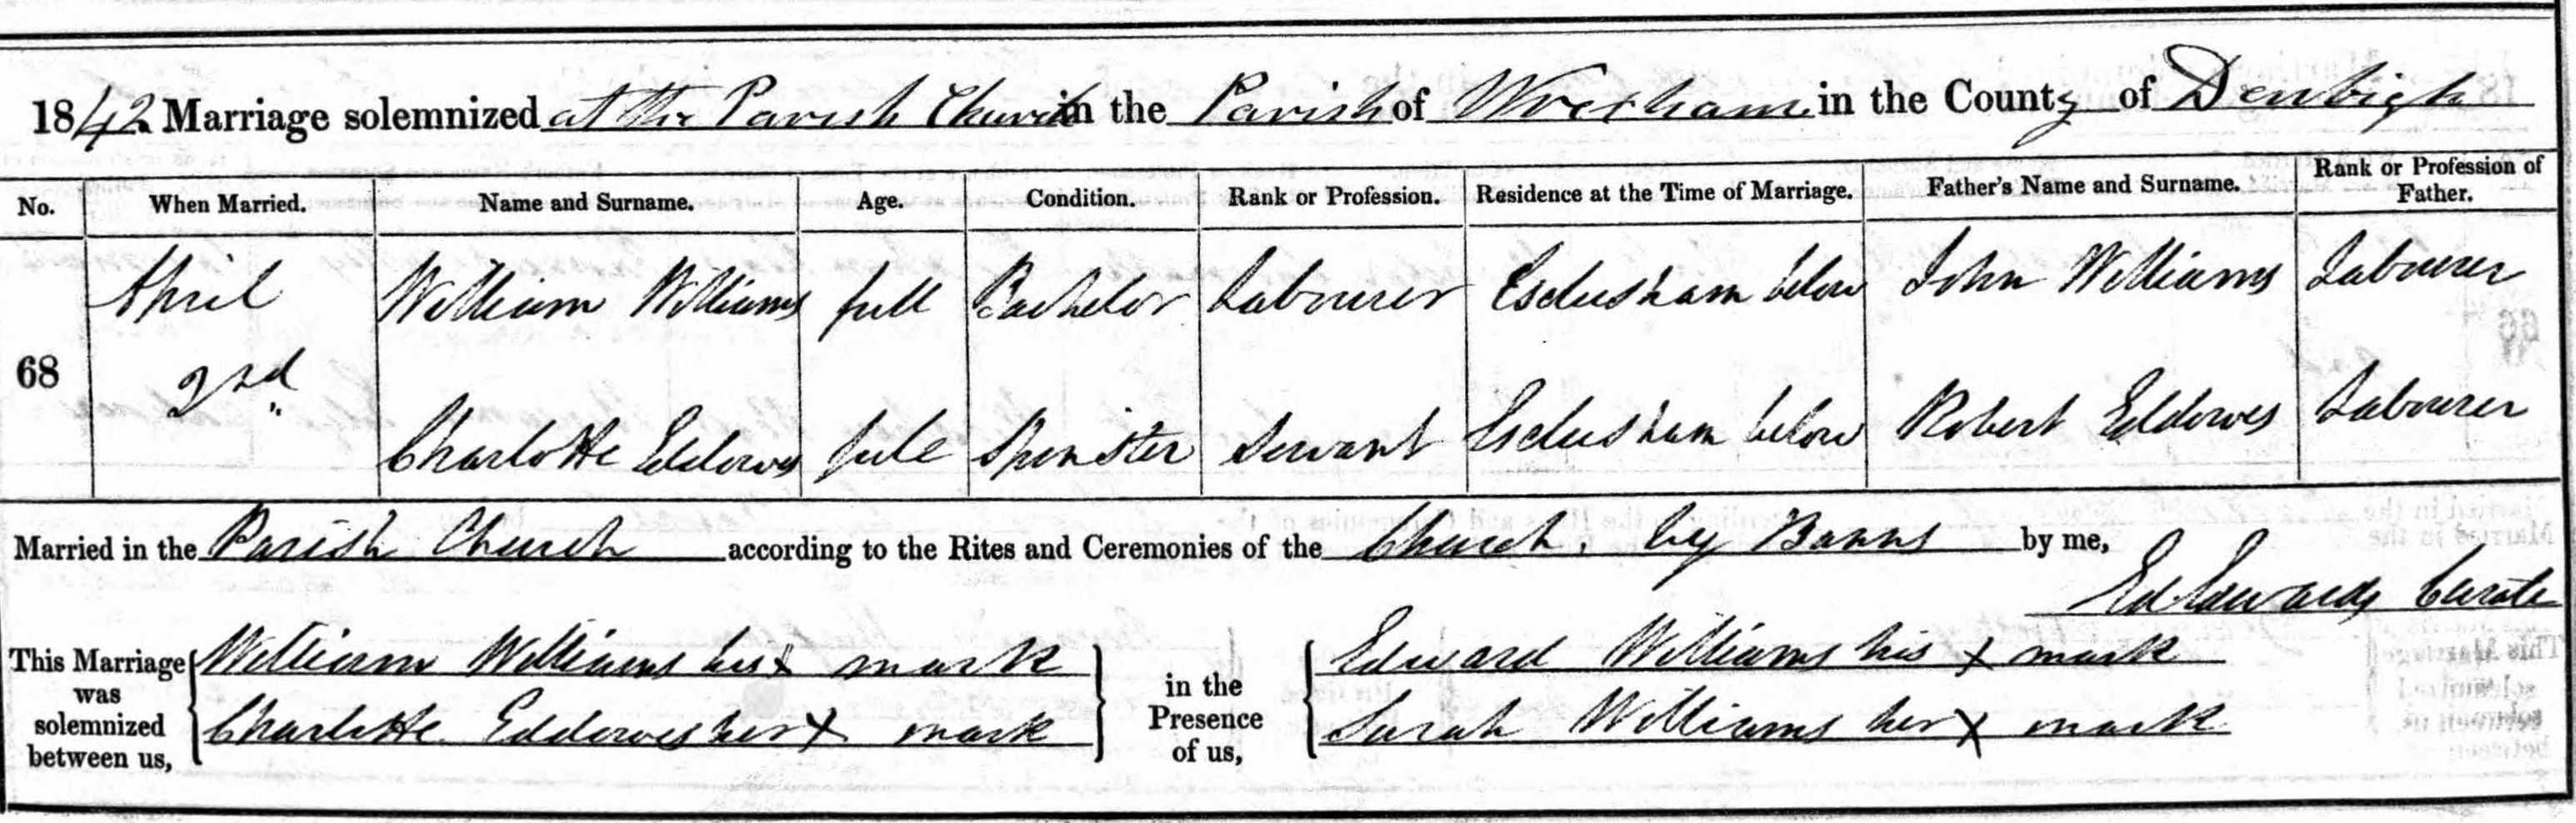 1842 Marriage solemnized at the Parish Church in the Parish of Wrexham in the County of Denbigh
No. When Married. Name and Surname. Age. Condition. Rank or Profession. Residence at the Time of Marriage. Father's Name and Surname. Rank or Profession of Father.
68 April 2nd William Williams full Bachelor Labourer Esclusham below John Williams Labourer
Charlotte Eddowes full Spinster Servant Esclusham below Robert Eddowes Labourer
Married in the Parish Church according to the Rites and Ceremonies of the Church, by Banns by me,
Ed Edwards Curate
This Marriage was solemnized between us, William Williams his x mark in the Presence of us, Edward Williams his x mark
Charlotte Eddowes her x mark Sarah Williams her x mark